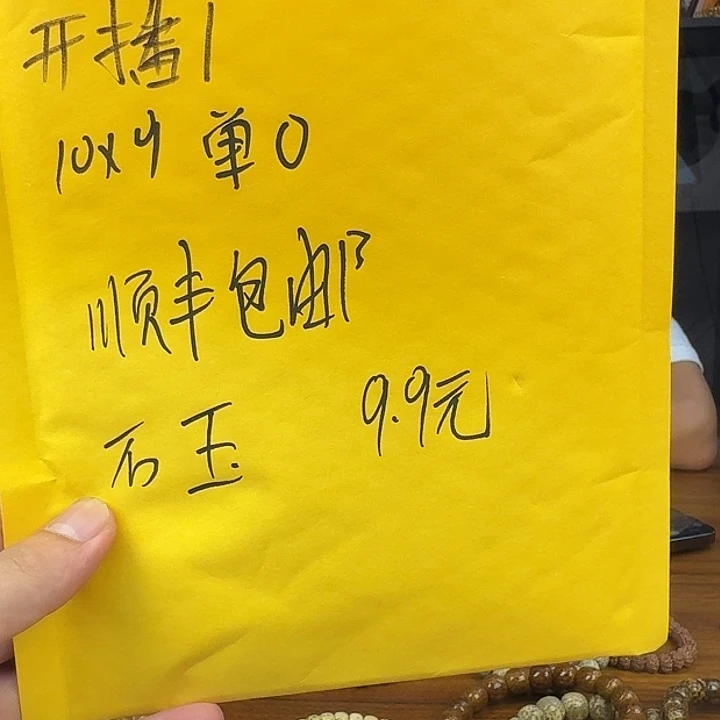 开播1
10x4 单0
顺丰包邮
石玉 9.9元